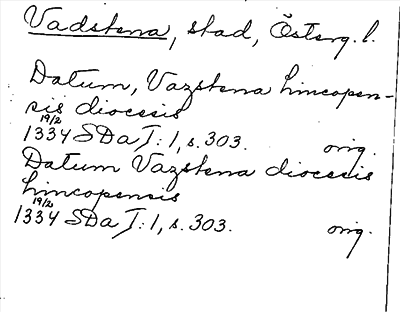 Vadstena, stad, Österg. l.
Datum, Vazstena Lincopen-
sis diocesis
19/2
1334 SDa I: 1, s. 303. orig.
Datum Vazstena diocesis
Lincopensis
19/2
1334 SDa I: 1, s. 303. orig.